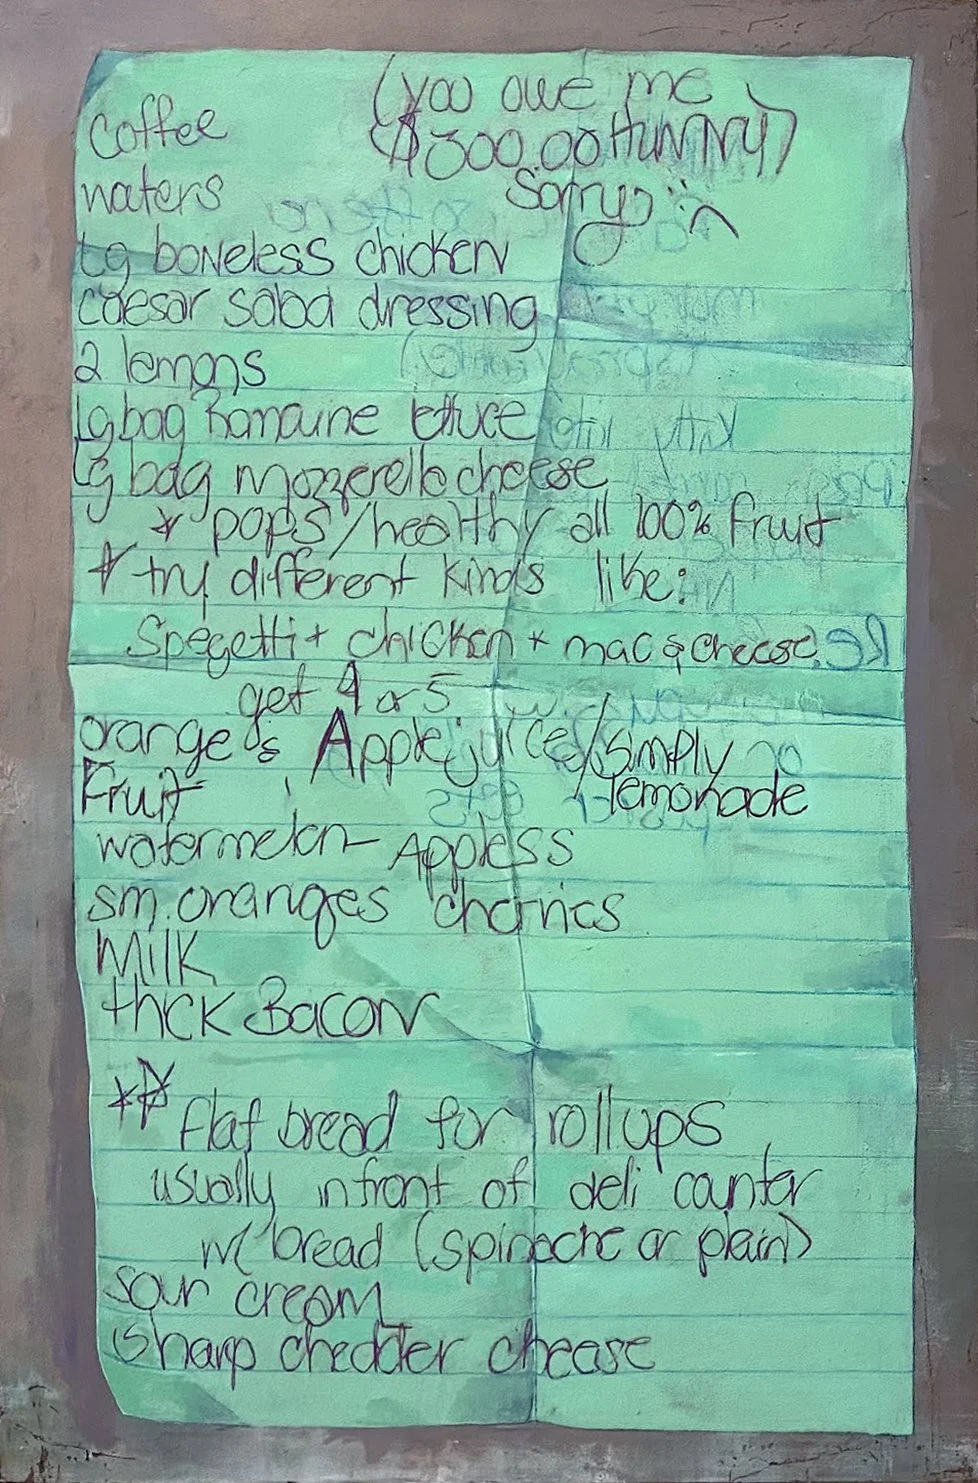 (you owe me
$300.00 Hunny)
Sorry :(
Coffee
waters
Lg boneless chicken
caesar salad dressing
2 lemons
Lg bag Romaine lettuce
Lg bag mozzerella cheese
* pops/healthy all 100% fruit
* try different kinds like:
Spegetti + chicken + mac & cheese
get 4 or 5
orange's Apple juice/simply
Fruit lemonade
watermelon - Appless
sm. oranges cherries
Milk
thick Bacon
** flat bread for rollups
usually in front of deli counter
w/ bread (spinache or plain)
Sour cream
Sharp chedder cheese